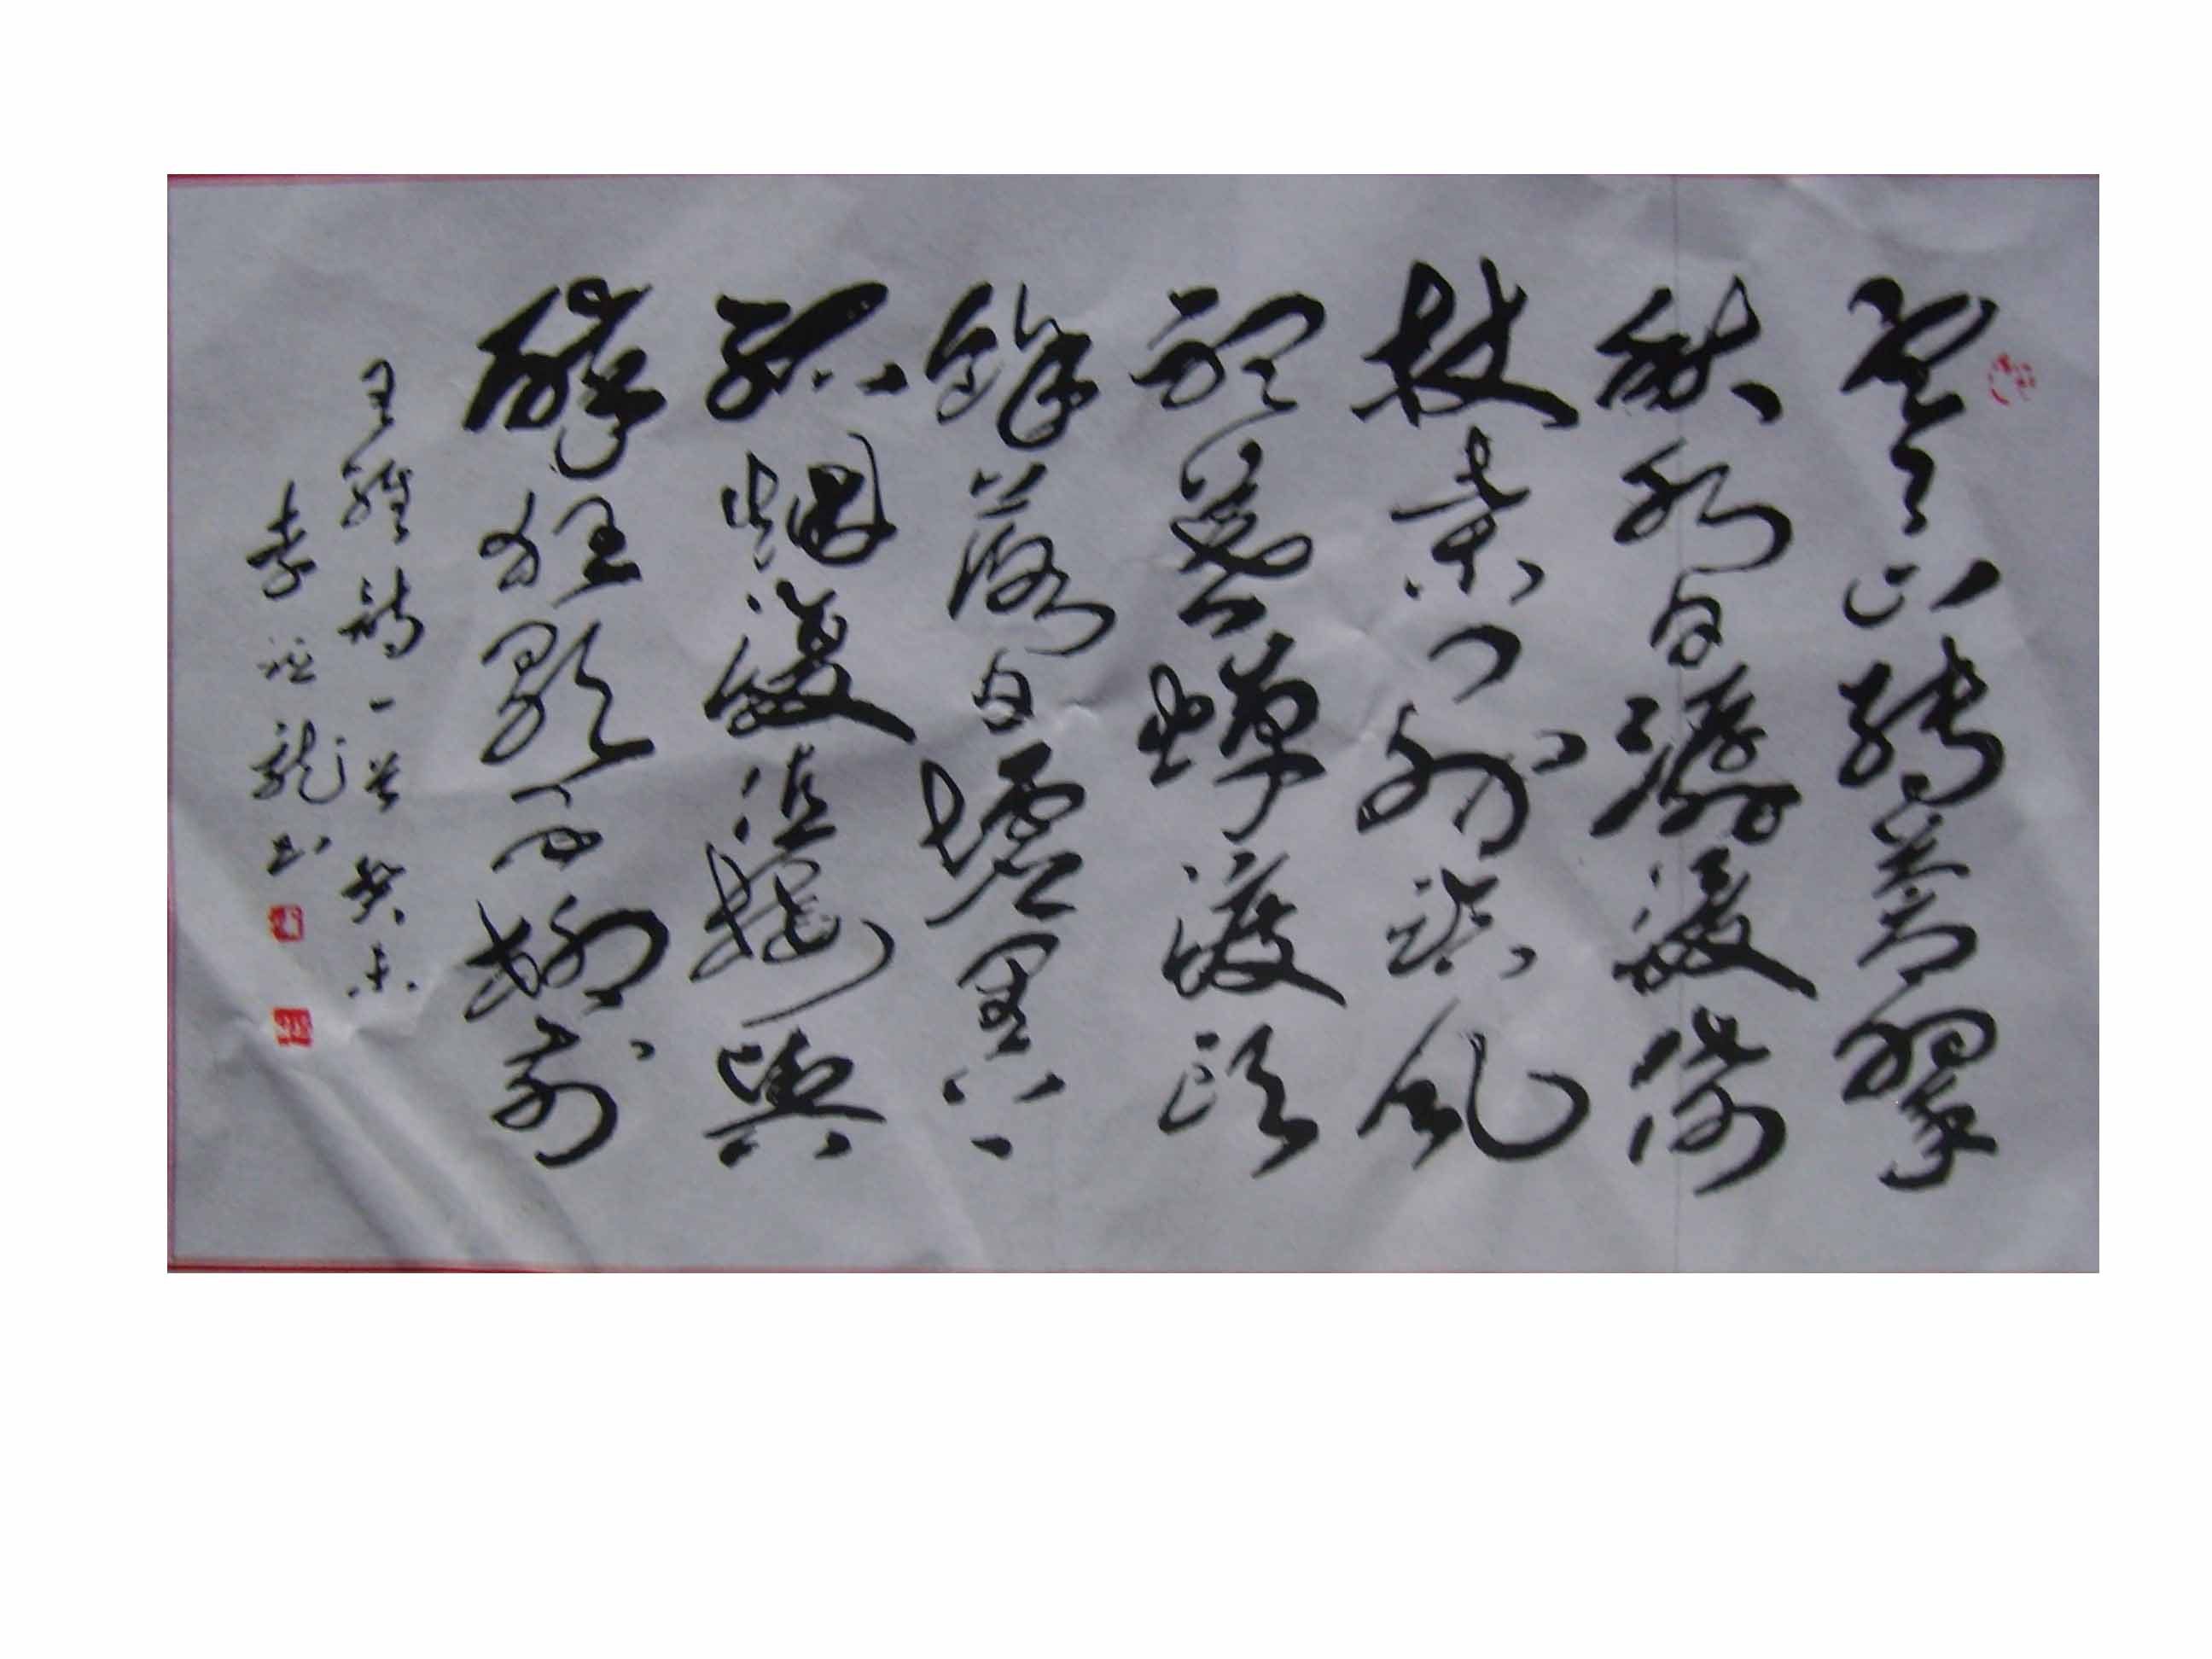 寒山轉蒼翠
秋水日潺湲倚
杖柴門外臨風
聽暮蟬渡頭
餘落日墟里上
孤烟復值接輿
醉狂歌五柳前
王維詩一首癸未
李龍书